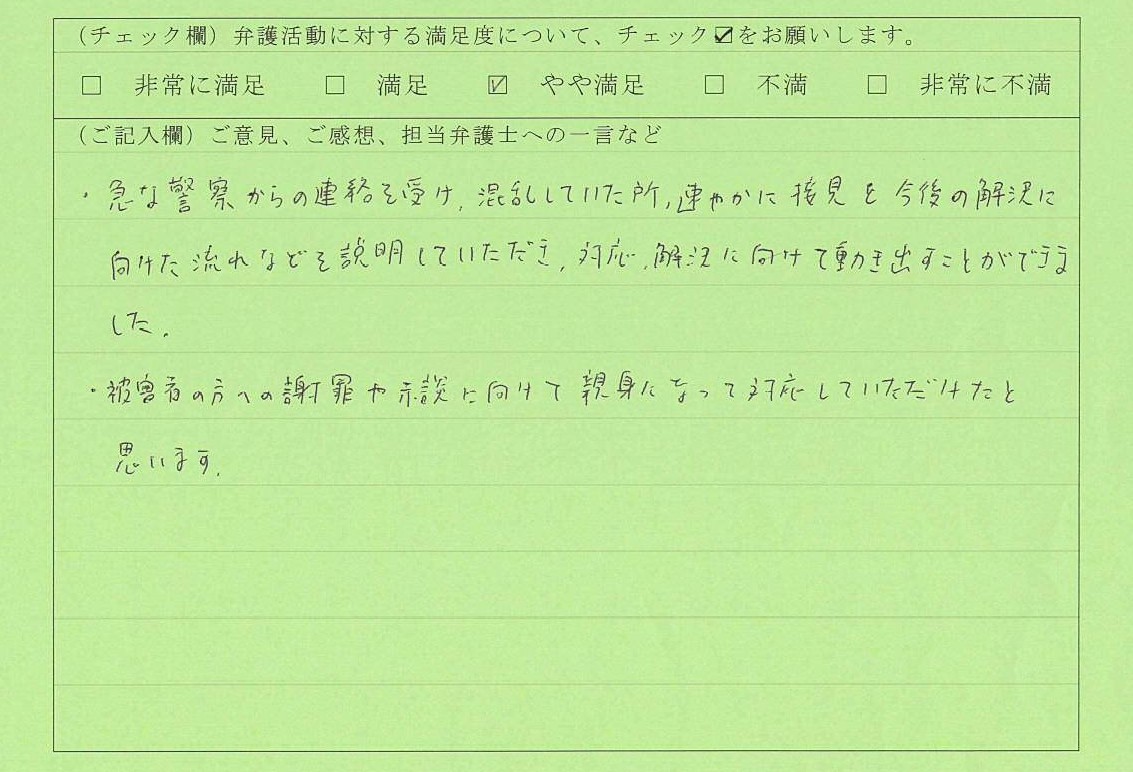 （チェック欄）弁護活動に対する満足度について、チェック☑をお願いします。
☐ 非常に満足 ☐ 満足 ☑ やや満足 ☐ 不満 ☐ 非常に不満
（ご記入欄）ご意見、ご感想、担当弁護士への一言など
・急な警察からの連絡を受け、混乱していた所、速やかに接見を今後の解決に
向けた流れなどを説明していただき、対応、解決に向けて動き出すことができま
した。
・被害者の方への謝罪や示談に向けて親身になって対応していただけたと
思います。